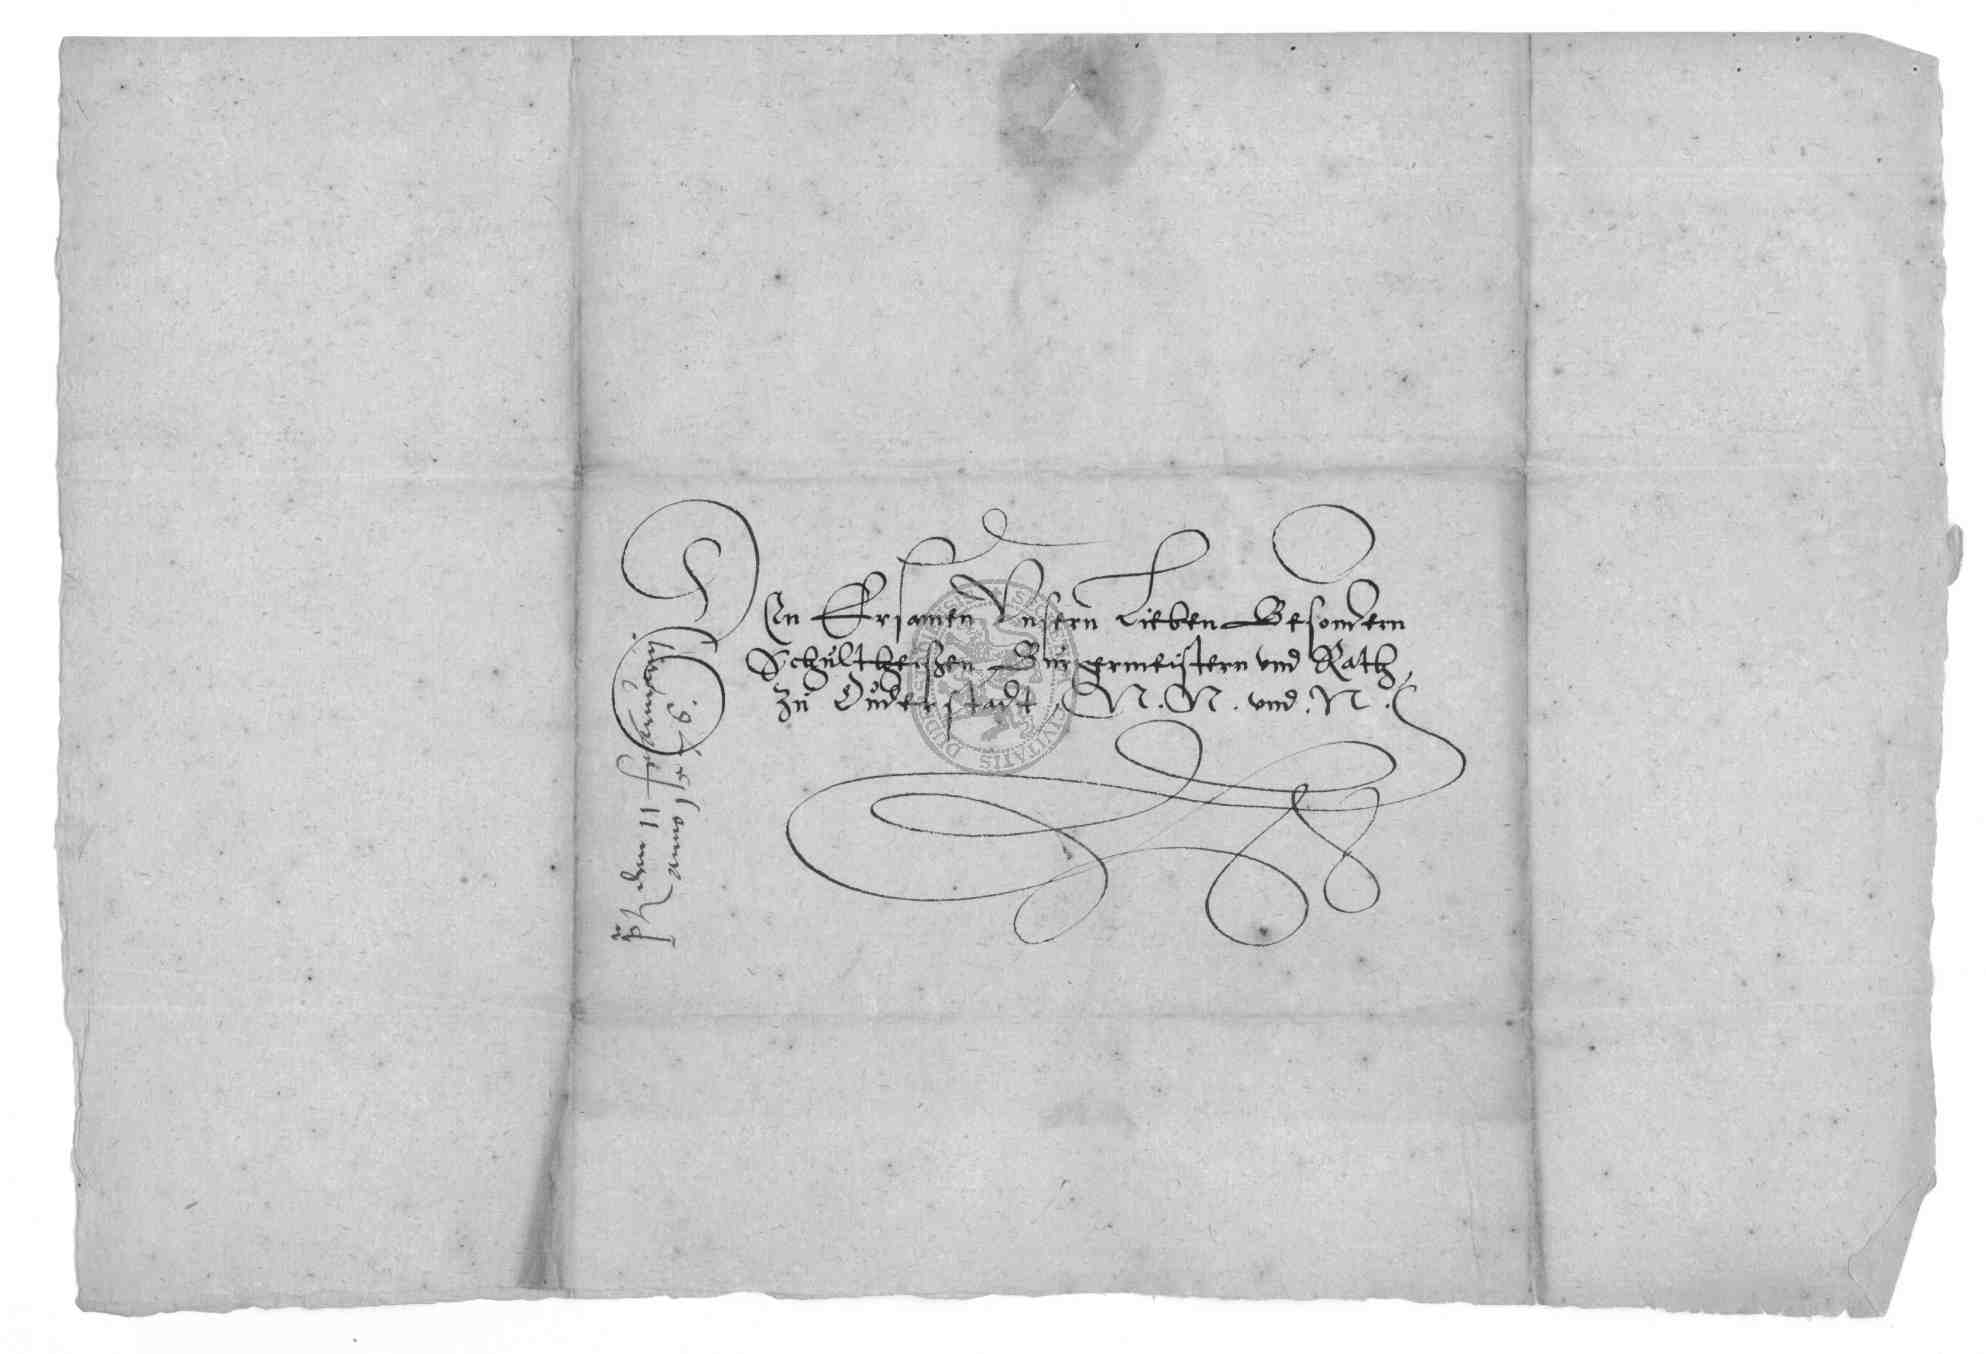 Den Ersamen Unsern Lieben Besondern
Schultheißen Bürgermeistern vnd Rath
zu Duderstadt, N. N. vnd N.
den 11
anno
CIVITATIS